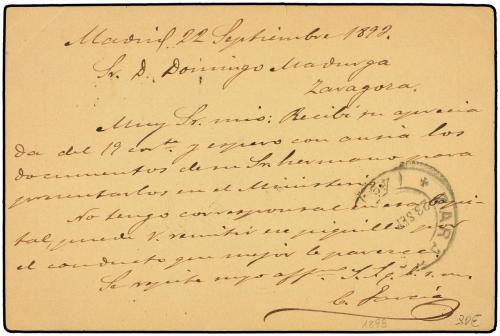 Madrid 22 Septiembre 1898.
Sr. D. Domingo Madurga
Zaragoza.
Muy Sr. mio: Recibí su aprecia
da del 19 cnte y espero con ansia los
documentos de su Sr. hermano para
presentarlos en el Ministerio
No tengo corresponsal en esa capi
tal, puede V. remitir un piquillo por
el conducto que mejor le parezca.
Se repite suyo affmo. S. S. q. b. s. m.
C. Garcia
23 SEP